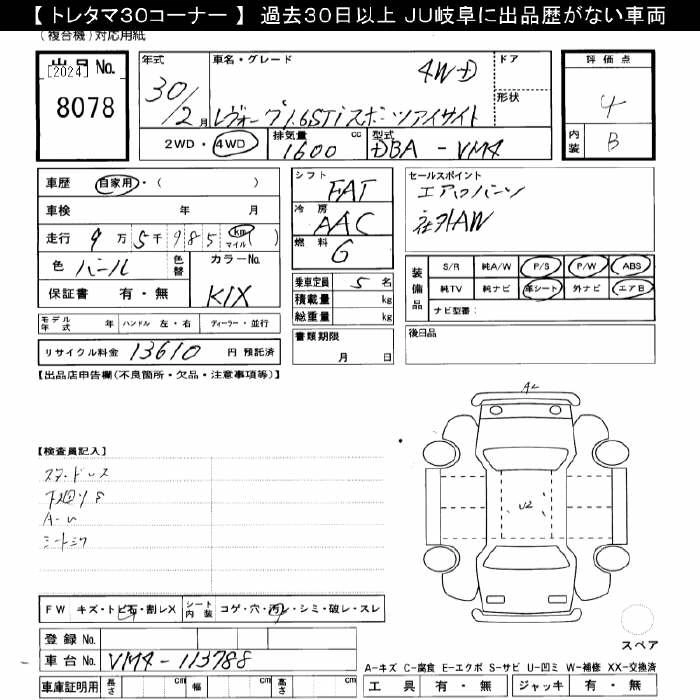 【 トレタマ30コーナー 】 過去30日以上 JU岐阜に出品歴がない車両
(複合機)対応用紙
出品 No.
[2024]
8078
年式
30/2月
車名・グレード
4WD
レヴォーグ1.6STiスポーツアイサイト
ドア
形状
2WD・4WD
排気量 1600 cc
型式 DBA - VM4
評価点
4
内装 B
車歴 自家用・( )
車検 年 月
走行 9万5千985 km マイル ( )
色 パール 色替
カラーNo. K1X
保証書 有・無
シフト FAT
冷房 AAC
燃料 G
乗車定員 5 名
積載量 kg
総重量 kg
セールスポイント
エアロパーツ
社外AW
装備品
S/R 純A/W P/S P/W ABS
純TV 純ナビ 革シート 外ナビ エアB
ナビ型番:
モデル年式 年 ハンドル 左・右 ディーラー・並行
書類期限 月 日
後日品
リサイクル料金 13610 円 預託済
【出品店申告欄(不良箇所・欠品・注意事項等)】
A2
【検査員記入】
スタッドレス
下廻りS
A-U
シートミワ
U2
FW キズ・トビ石・割レX シート内装 コゲ・穴・汚レ・シミ・破レ・スレ
登録 No.
車台 No. VM4-113788
車庫証明用 長さ cm 幅 cm 高さ cm
スペア
A-キズ C-腐食 E-エクボ S-サビ U-凹ミ W-補修 XX-交換済
工具 有・無 ジャッキ 有・無